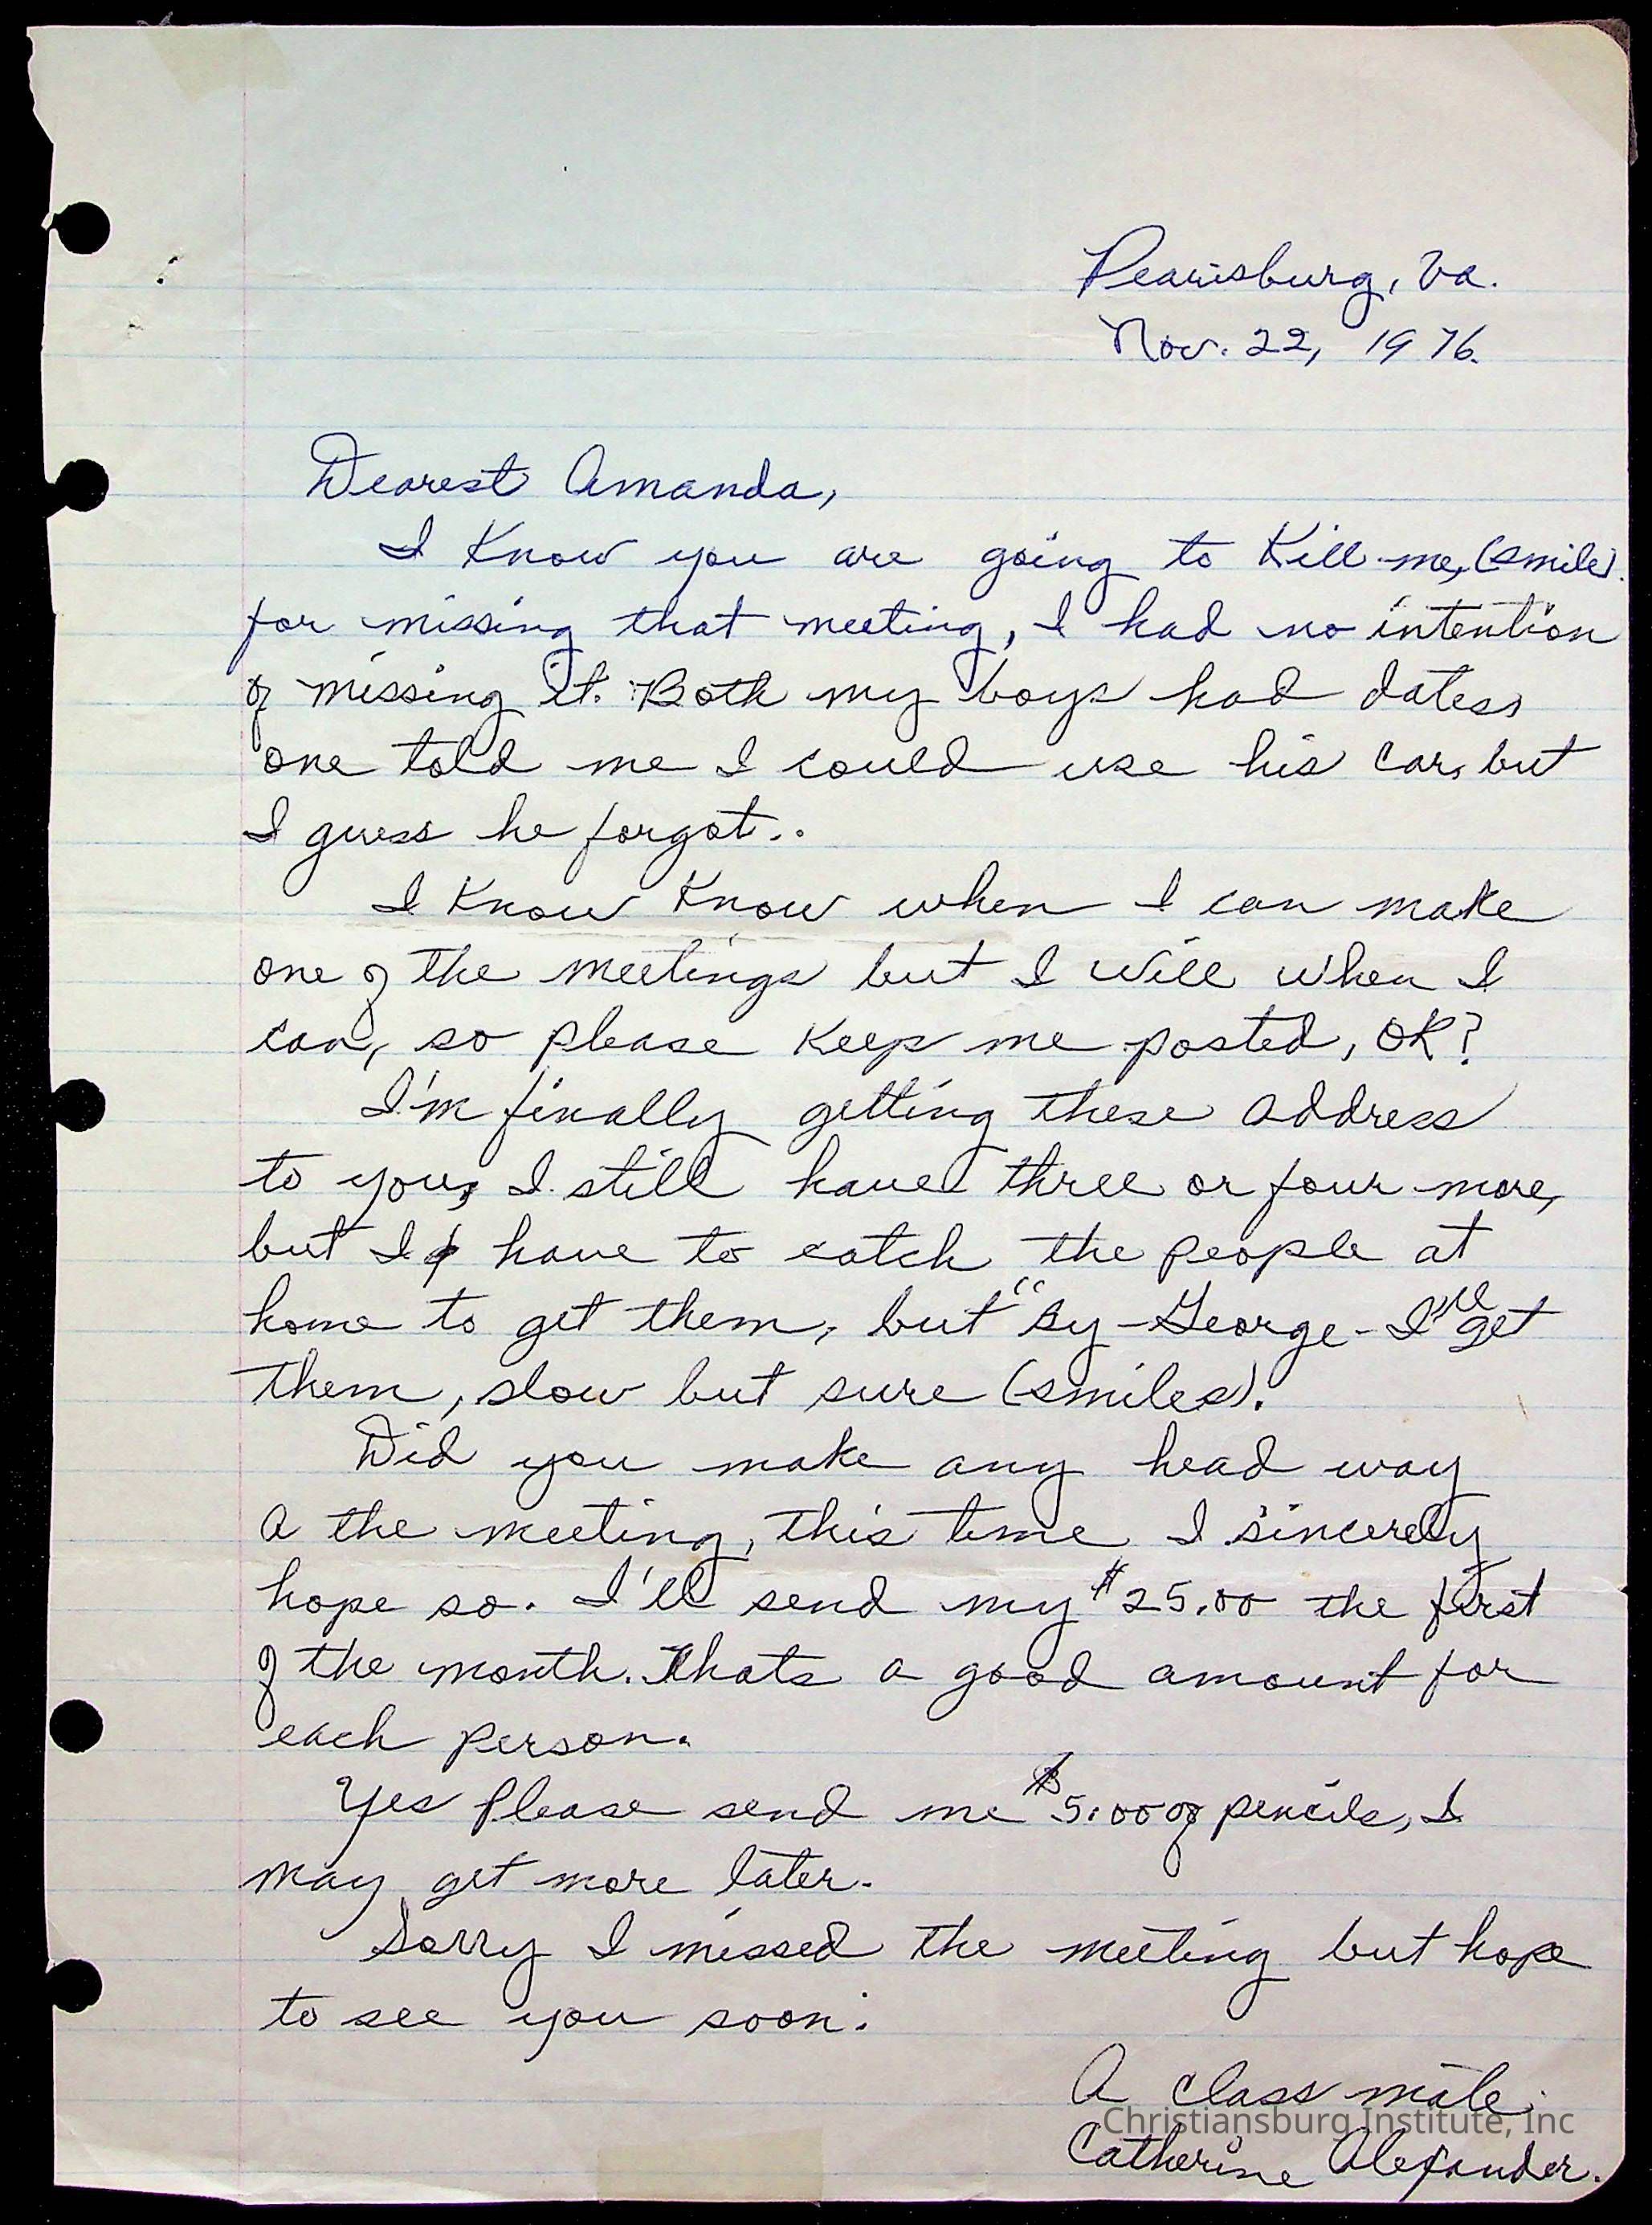 Pearisburg, Va.
Nov. 22, 1976.
Dearest Amanda,
I Know you are going to Kill me, (smile).
for missing that meeting, I had no intention
of missing it. Both my boys had dates,
one told me I could use his car, but
I guess he forgot..
I Know Know when I can make
one of the meetings but I will when I
can, so please Keep me posted, OK?
I'm finally getting these address
to you, I still have three or four more,
but I have to catch the people at
home to get them, but "By-George-I'll get
them, slow but sure (smiles).
Did you make any head way
a the meeting, this time I sincerely
hope so. I'll send my $25.00 the first
of the month. Thats a good amount for
each person.
Yes Please send me $5.00 of pencils, I
may get more later.
Sorry I missed the meeting but hope
to see you soon.
A class mate,
Christiansburg Institute, Inc
Catherine Alexander.